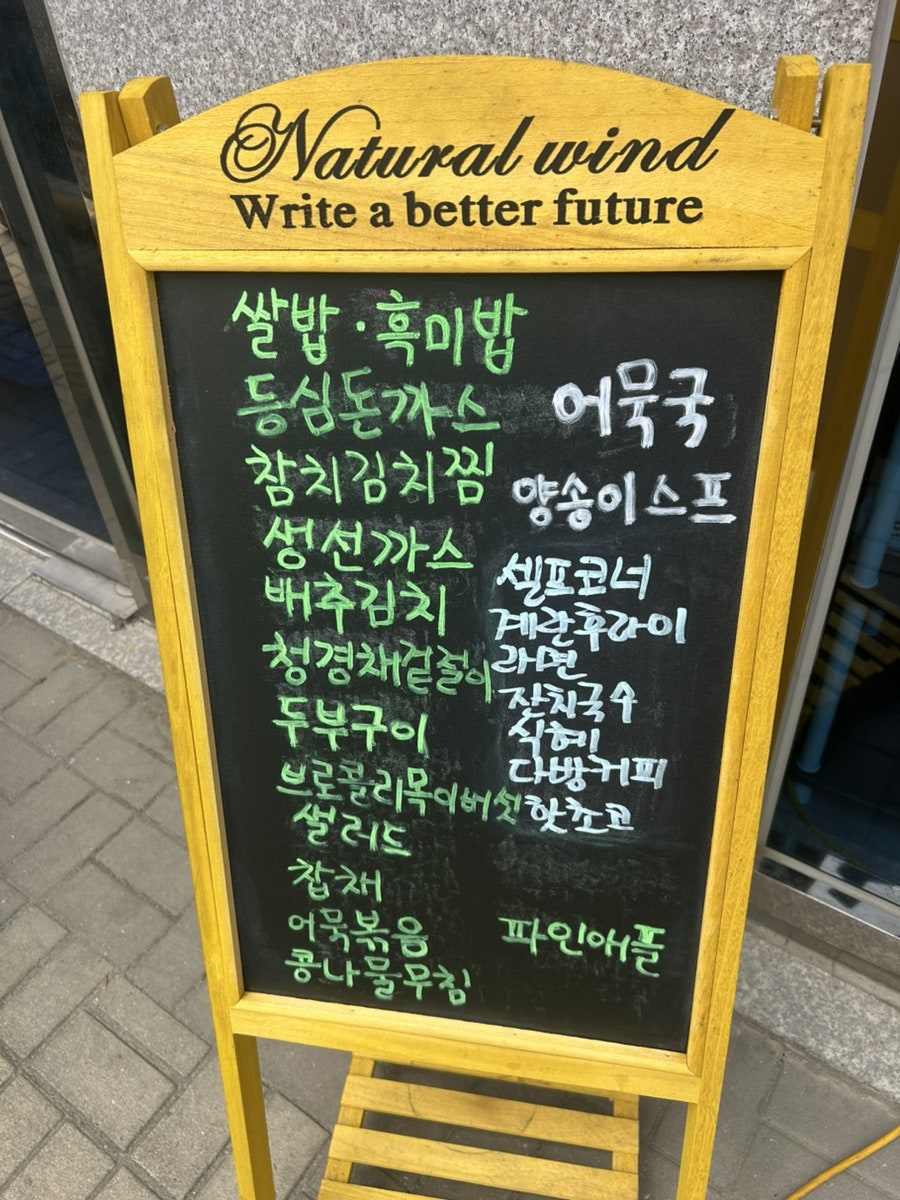 Natural wind
Write a better future
쌀밥·흑미밥
등심돈까스
참치김치찜
생선까스
배추김치
청경채겉절이
두부구이
브로콜리목이버섯
샐러드
잡채
어묵볶음
콩나물무침
어묵국
양송이스프
셀프코너
계란후라이
라면
잔치국수
식혜
다방커피
핫초코
파인애플